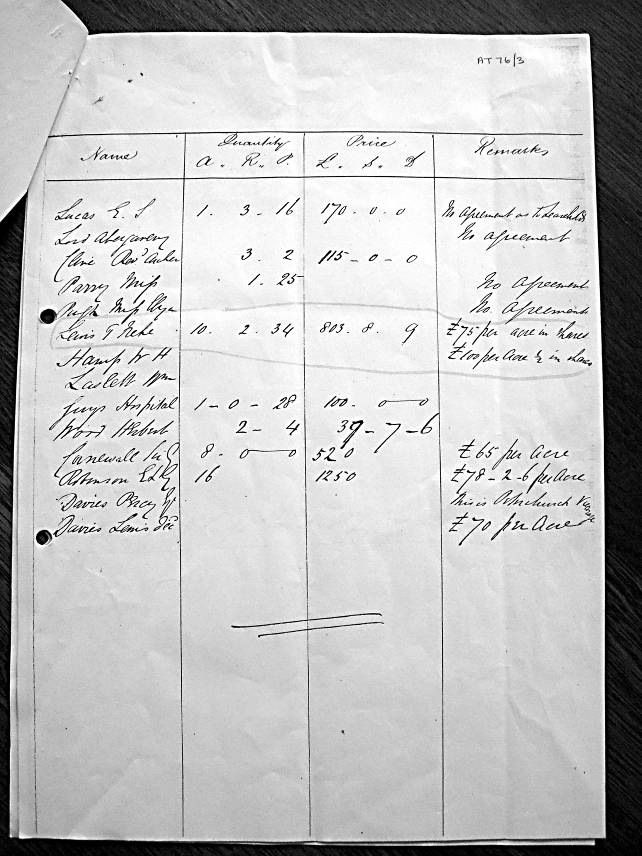 AT 76/3
Name Quantity Price Remarks
A. R. P. L. S. D
Lucas E. S 1. 3-16 170-0-0 No agreement as to
Lord Abergavenny No agreement
Clive Revd Archer 3. 2 115-0-0
Parry Miss 1. 25 No agreement
Pugh Miss No agreement
Lewis T 10. 2. 34 803. 8. 9 £75 per acre in shares
Hamp W H £100 per acre ½ in shares
Laslett Wm
Guys Hospital 1-0-28 100. 0 0
Wood 2-4 39-7-6
Cornewall Sir G 8. 0 0 520 £65 per acre
Robinson Ed 16 1250 £78-2-6 per acre
Davies Percy This is
Davies Lewis £70 per Acre